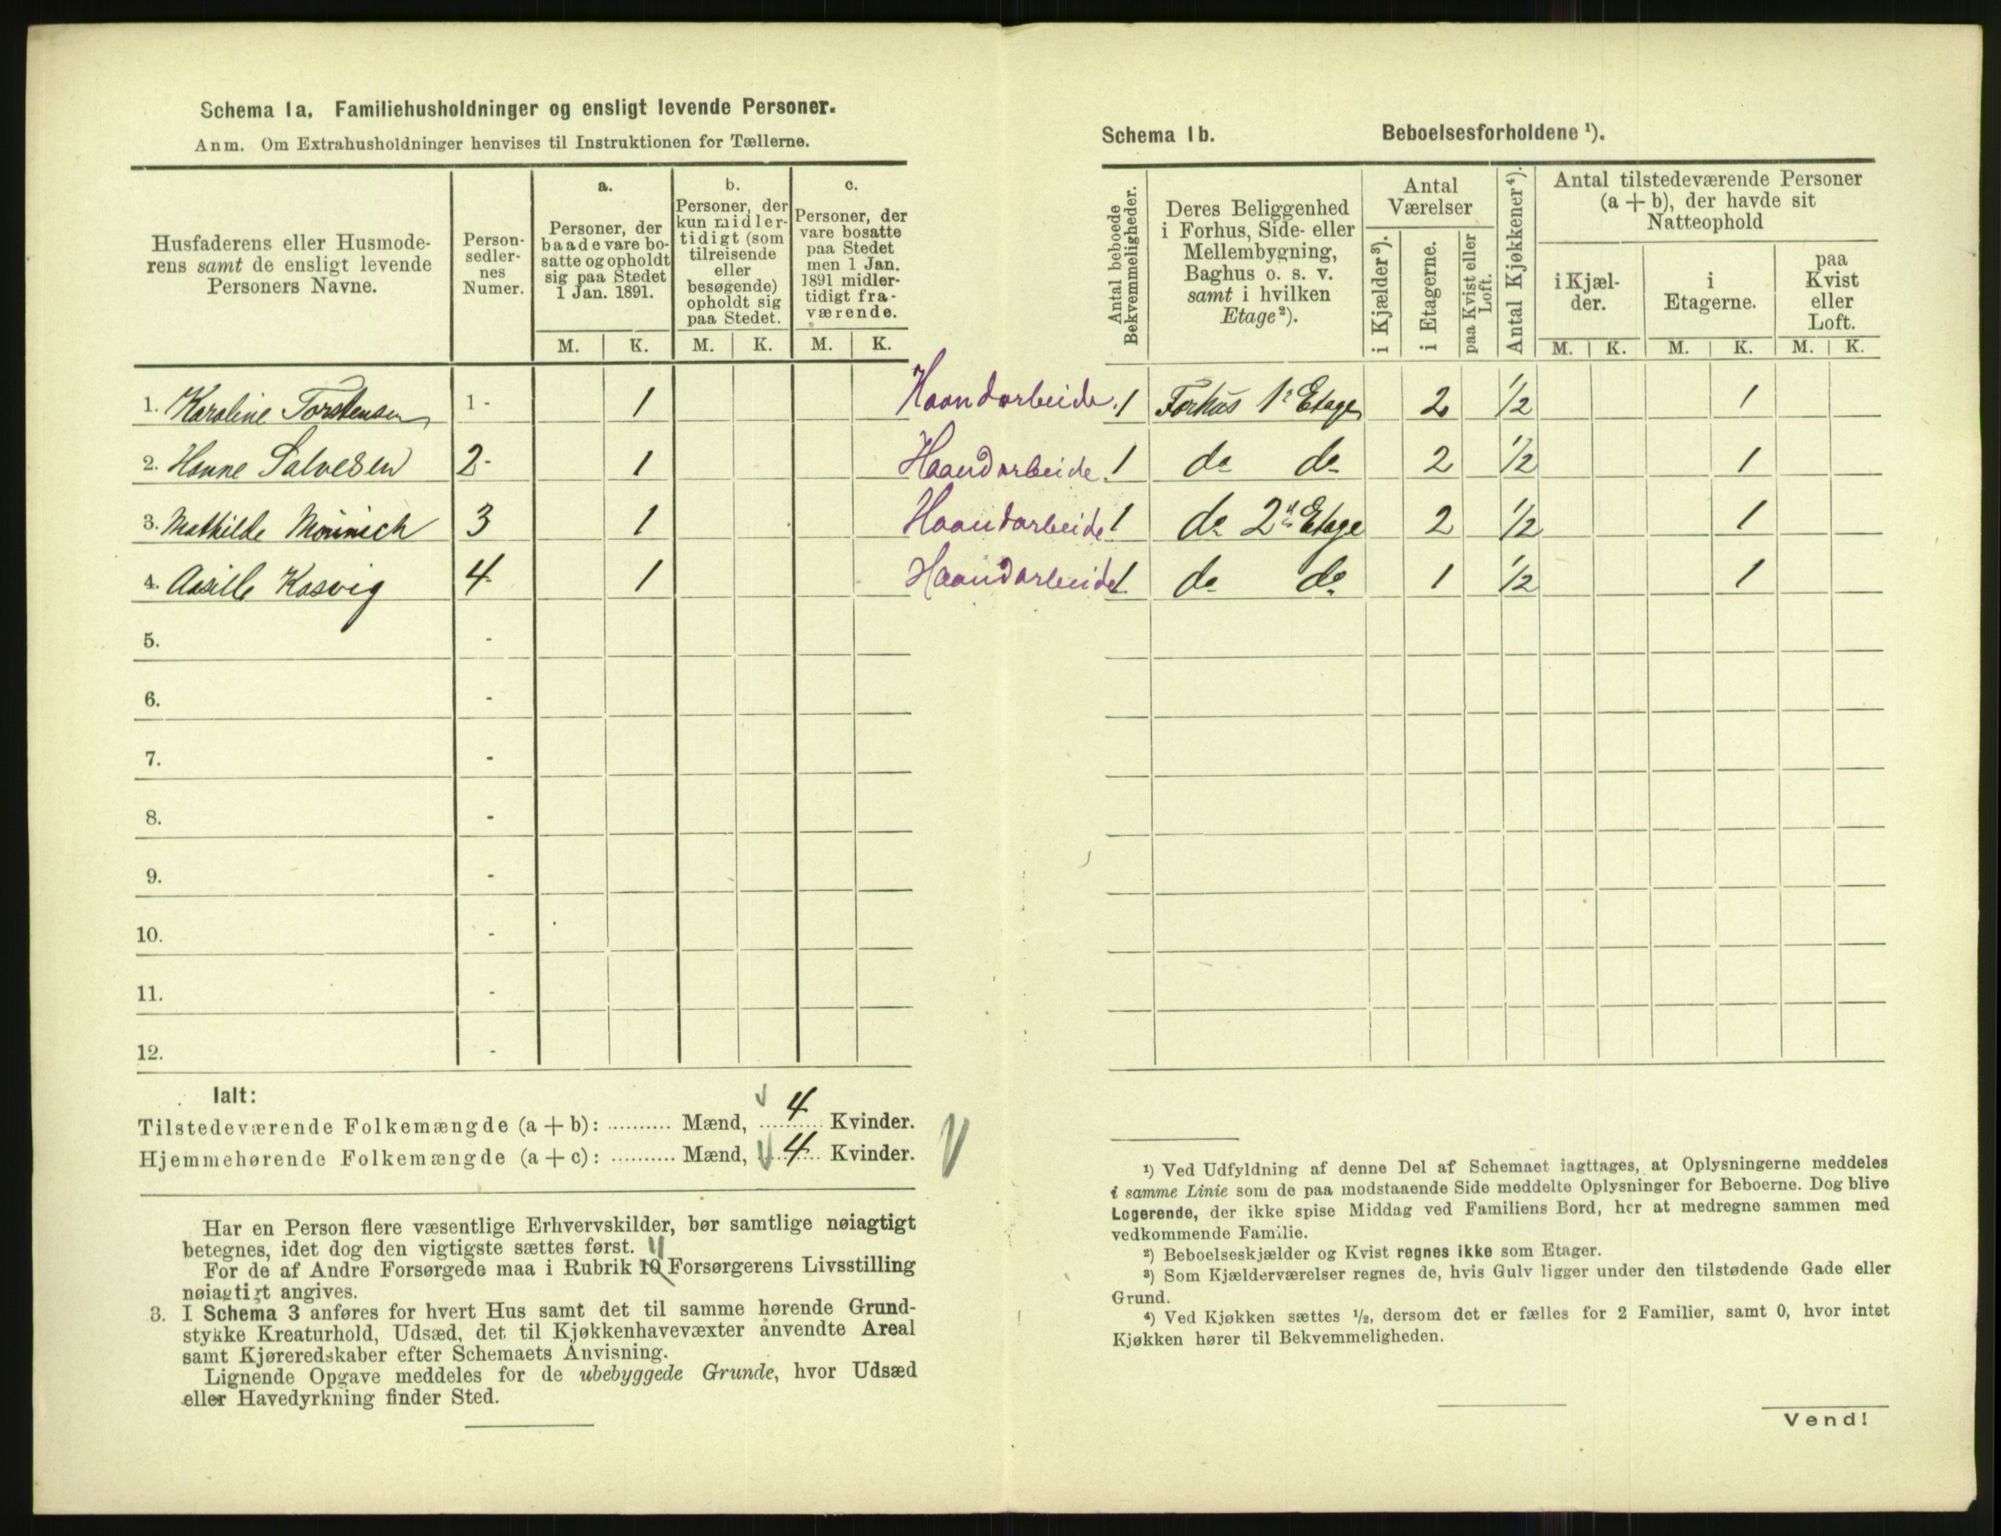 Schema 1a. Familiehusholdninger og ensligt levende Personer.
Anm. Om Extrahusholdninger henvises til Instruktionen for Tællerne.
Husfaderens eller Husmode-
rens samt de ensligt levende
Personers Navne.
Person-
sedler-
nes
Numer.
a.
Personer, der
baade vare bo-
satte og opholdt
sig paa Stedet
1 Jan. 1891.
b.
Personer, der
kun midler-
tidigt (som
tilreisende
eller
besøgende)
opholdt sig
paa Stedet.
c.
Personer, der
vare bosatte
paa Stedet
men 1 Jan.
1891 midler-
tidigt fra-
værende.
M. K. M. K. M. K.
1. Karoline Torstensen 1 - 1
2. Hanne Salvesen 2 - 1
3. Mathilde 3 1
4. Kosvig 4 - 1
5. -
6. -
7. -
8. -
9. -
10. -
11. -
12. -
Ialt:
Tilstedeværende Folkemængde (a + b): .......... Mænd, 4 Kvinder.
Hjemmehørende Folkemængde (a + c): .......... Mænd, 4 Kvinder.
Har en Person flere væsentlige Erhvervskilder, bør samtlige nøiagtigt
betegnes, idet dog den vigtigste sættes først.
For de af Andre Forsørgede maa i Rubrik 10 11 Forsørgerens Livsstilling
nøiagtigt angives.
3. I Schema 3 anføres for hvert Hus samt det til samme hørende Grund-
stykke Kreaturhold, Udsæd, det til Kjøkkenhavevæxter anvendte Areal
samt Kjøreredskaber efter Schemaets Anvisning.
Lignende Opgave meddeles for de ubebyggede Grunde, hvor Udsæd
eller Havedyrkning finder Sted.
Schema 1b. Beboelsesforholdene ¹).
Antal beboede
Bekvemmeligheder.
Deres Beliggenhed
i Forhus, Side- eller
Mellembygning,
Baghus o. s. v.
samt i hvilken
Etage²).
Antal
Værelser
i Kjælder³).
i Etagerne.
paa Kvist eller
Loft.
Antal Kjøkkener⁴).
Antal tilstedeværende Personer
(a + b), der havde sit
Natteophold
i Kjæl-
der.
i
Etagerne.
paa
Kvist
eller
Loft.
M. K. M. K. M. K.
Haandarbeide. 1 Forhus 1ᵉ Etage 2 1/2 1
Haandarbeide. 1 do do 2 1/2 1
Haandarbeide 1 do 2den Etage 2 1/2 1
Haandarbeide 1 do do 1 1/2 1
¹) Ved Udfyldning af denne Del af Schemaet iagttages, at Oplysningerne meddeles
i samme Linie som de paa modstaaende Side meddelte Oplysninger for Beboerne. Dog blive
Logerende, der ikke spise Middag ved Familiens Bord, her at medregne sammen med
vedkommende Familie.
²) Beboelseskjælder og Kvist regnes ikke som Etager.
³) Som Kjælderværelser regnes de, hvis Gulv ligger under den tilstødende Gade eller
Grund.
⁴) Ved Kjøkken sættes ½, dersom det er fælles for 2 Familier, samt 0, hvor intet
Kjøkken hører til Bekvemmeligheden.
Vend!